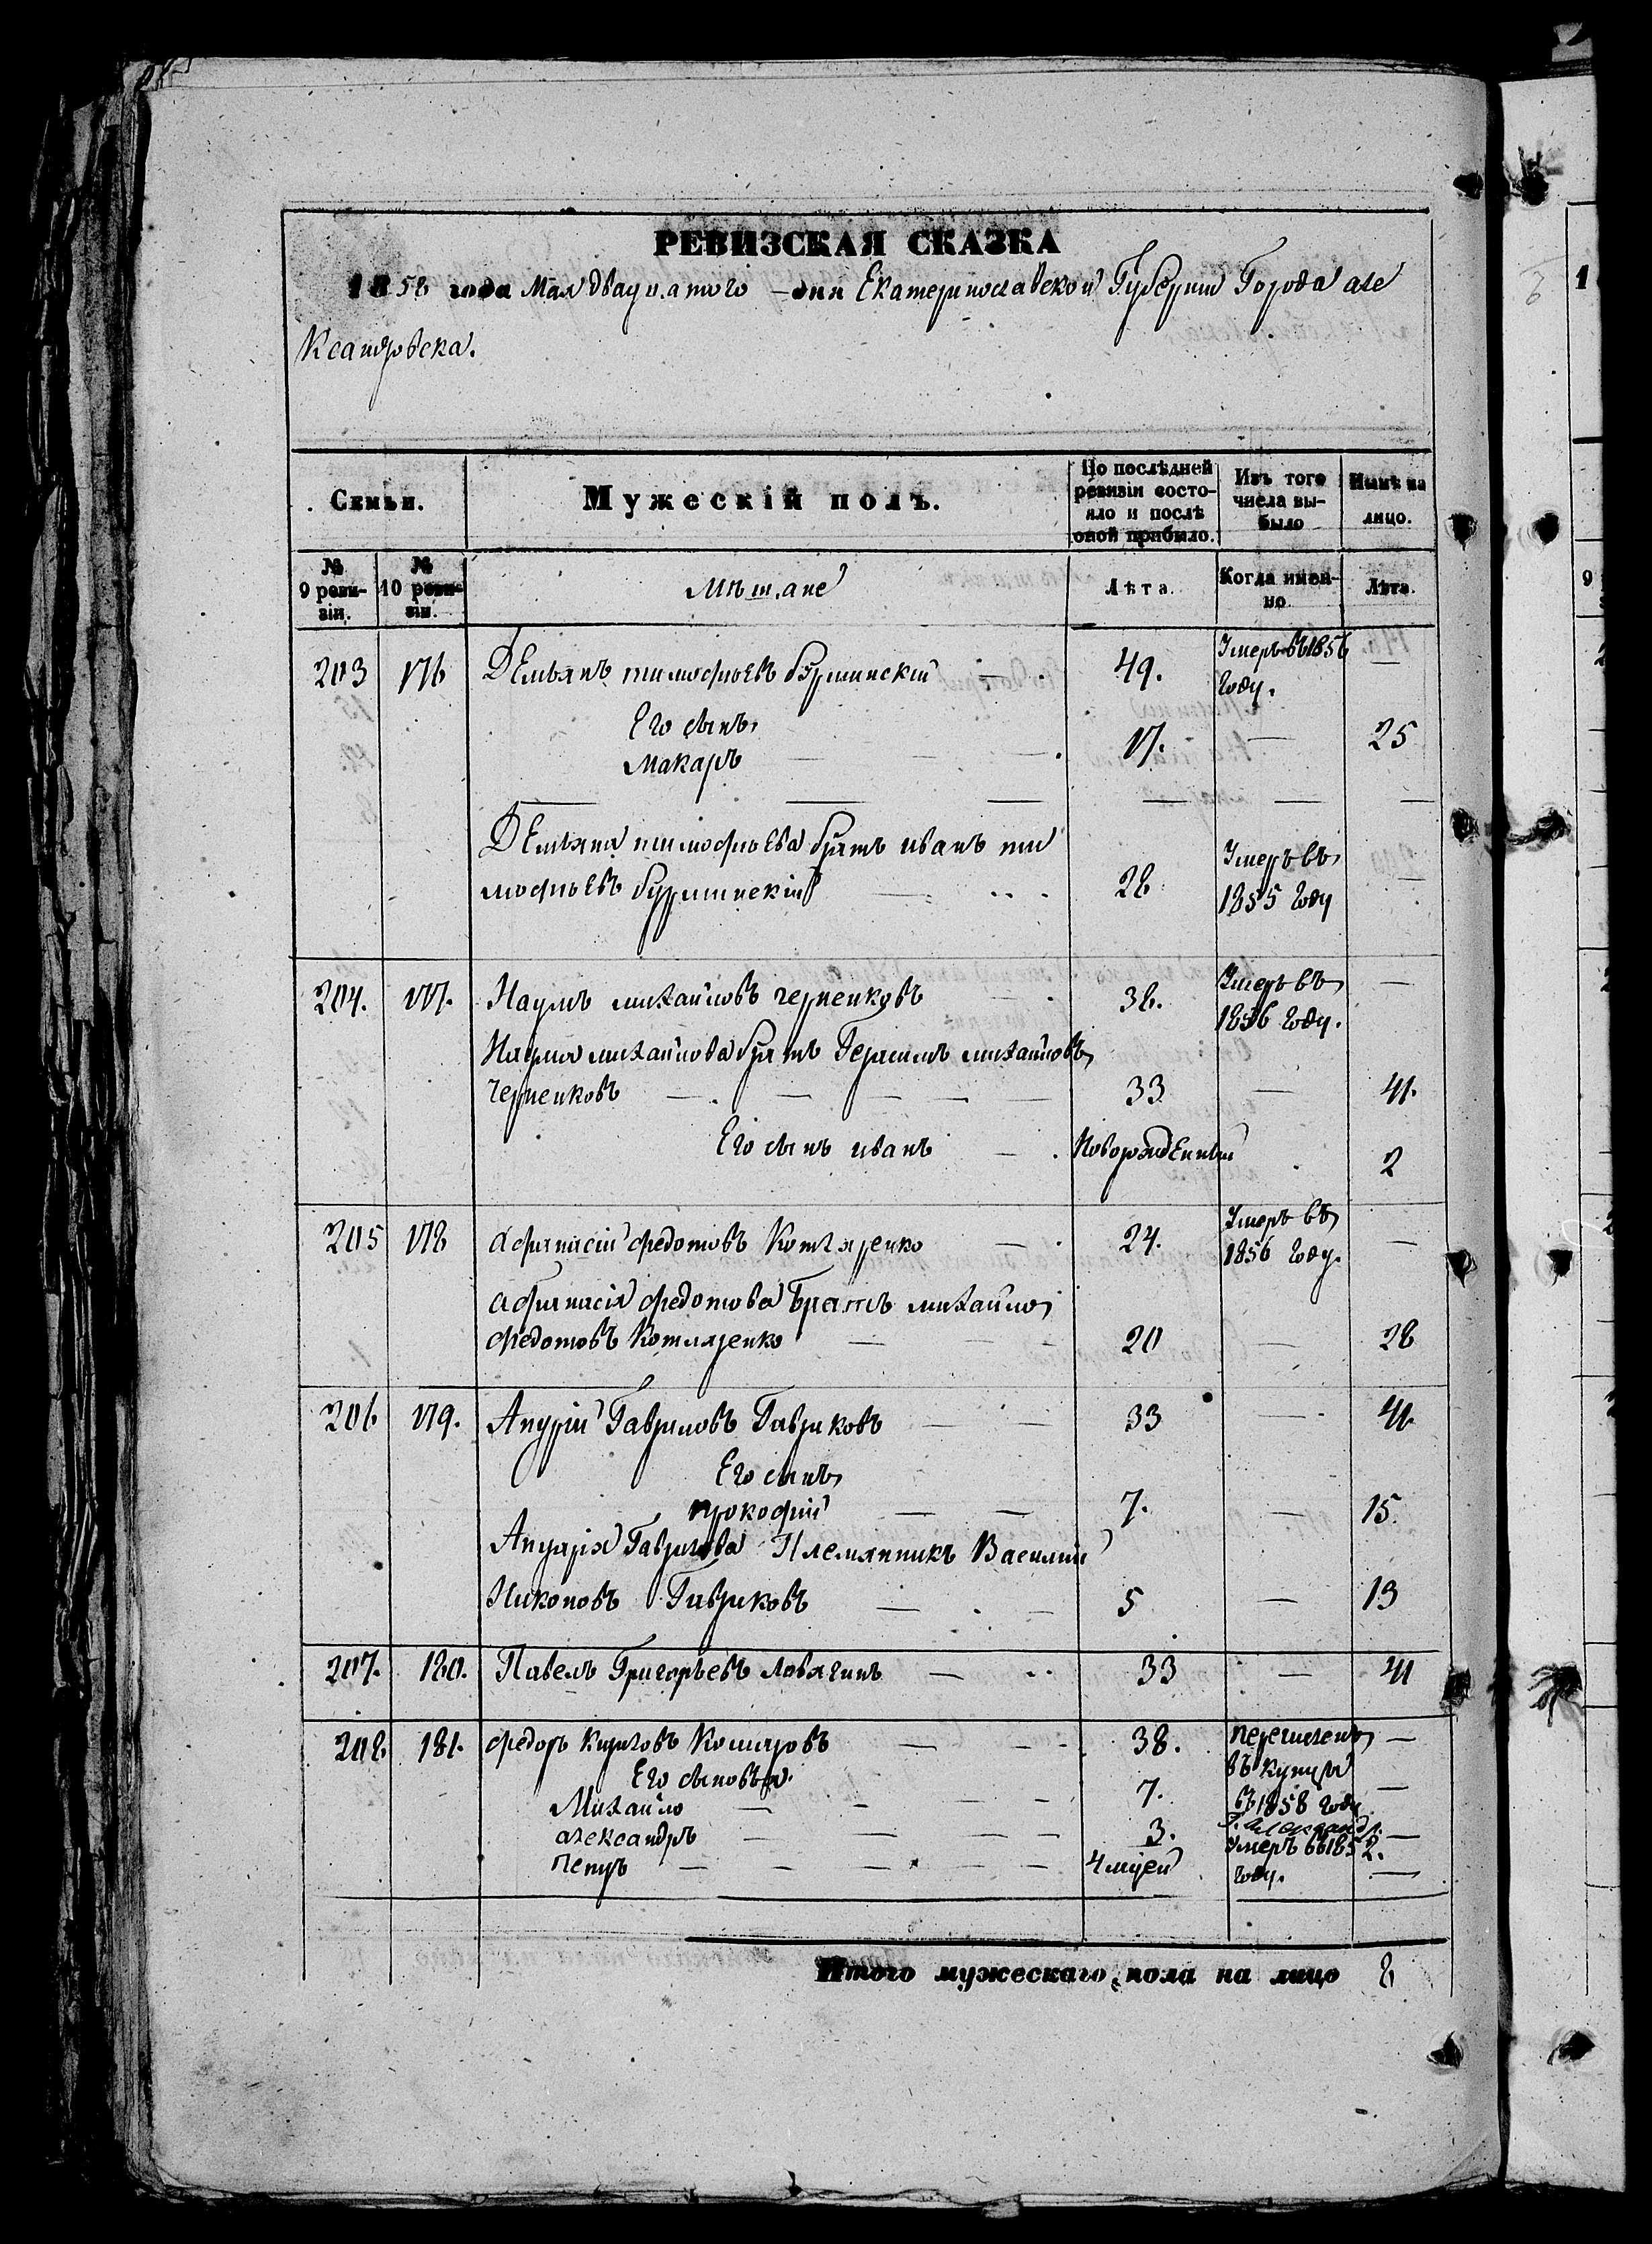 РЕВИЗСКАЯ СКАЗКА
1858 года Мая двацатого дня Екатеринославской Губернии Города але
ксандровска.
Семьи. Мужескій полъ. По послѣдней ревизіи состояло и послѣ оной прибыло. Изъ того числа выбыло Нынѣ на лицо.
№ 9 ревизіи. № 10 ревизіи. Мѣщане Лѣта. Когда именно. Лѣта.
203 176 Демьянъ тимофѣевъ бурминскій — 49. Умеръ въ 1856 году. —
Его сынъ,
макаръ — 17. — 25
Демьяна тимофѣева братъ иванъ ти
мофѣевъ бурминскій — 28 Умеръ въ 1855 году —
204. 177. Наумъ михайловъ черненковъ — 38. Умеръ въ 1856 году. —
Наума михайлова братъ Герасимъ михайловъ,
черненковъ — 33 — 41.
Его сынъ иванъ — Новорожденный 2
205 178 афанасій федотовъ Котляренко — 24. Умеръ въ 1856 году. —
афанасія федотова братъ михайло,
федотовъ Котляренко — 20 — 28
206 179. Андрій Гавриловъ Гавриковъ — 33 — 41.
Его сынъ,
прокофій — 7. — 15.
Андрія Гаврилова Племянникъ Василій
Никоновъ Гавриковъ — 5 — 13
207. 180. Павелъ Григорьевъ Ловягинъ — 33 — 41
208. 181. федоръ Кириловъ Комаровъ — 38. перечисленъ —
Его сыновья. въ купцы
Михайло — 7. въ 1858 году —
александръ — 3. Г. Александр. —
петръ — 4 мцей Умеръ въ 1852. году. —
Итого мужескаго пола на лицо 8